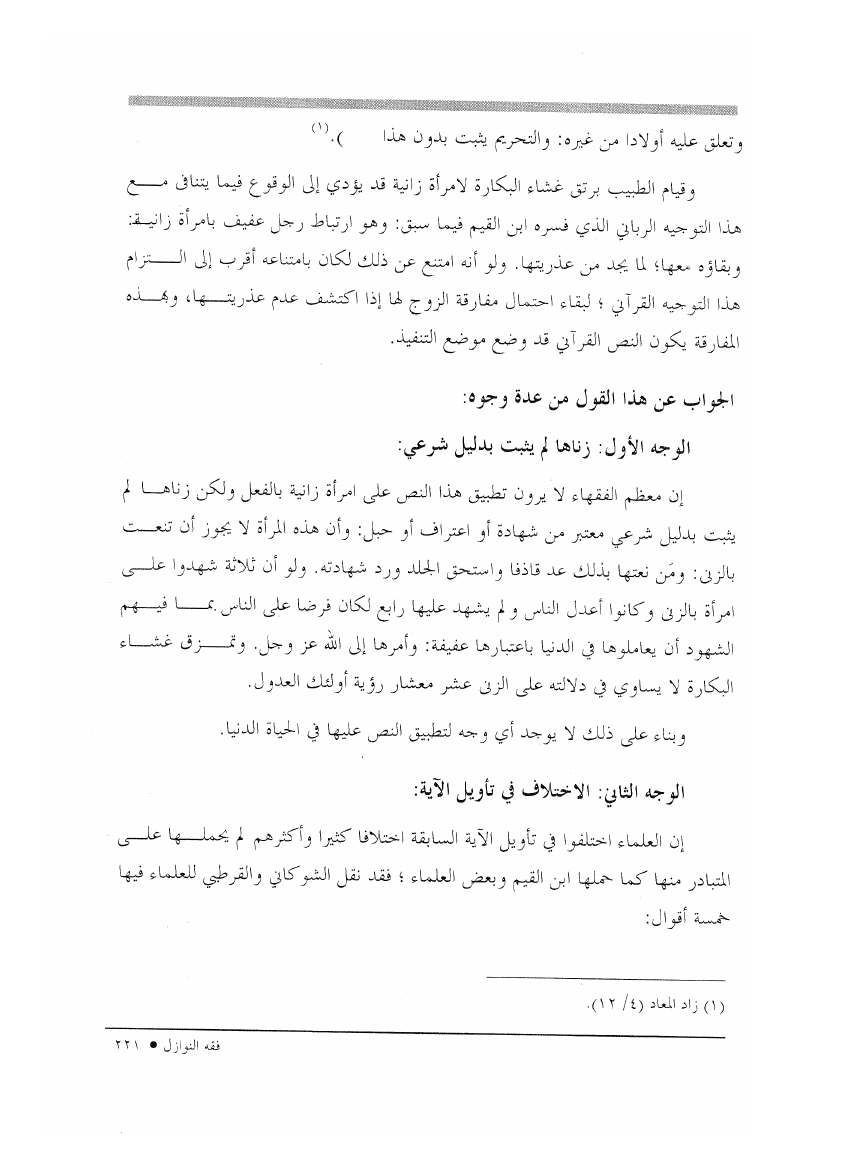 وتعلق عليه أولادا من غيره: والتحريم يثبت بدون هذا ).(١)
وقيام الطبيب برتق غشاء البكارة لامرأة زانية قد يؤدي إلى الوقوع فيما يتنافى مع
هذا التوجيه الرباني الذي فسره ابن القيم فيما سبق: وهو ارتباط رجل عفيف بامرأة زانية:
وبقاؤه معها؛ لما يجد من عذريتها. ولو أنه امتنع عن ذلك لكان بامتناعه أقرب إلى التزام
هذا التوجيه القرآني ؛ لبقاء احتمال مفارقة الزوج لها إذا اكتشف عدم عذريتها، وبهذه
المفارقة يكون النص القرآني قد وضع موضع التنفيذ.
الجواب عن هذا القول من عدة وجوه:
الوجه الأول: زناها لم يثبت بدليل شرعي:
إن معظم الفقهاء لا يرون تطبيق هذا النص على امرأة زانية بالفعل ولكن زناها لم
يثبت بدليل شرعي معتبر من شهادة أو اعتراف أو حبل: وأن هذه المرأة لا يجوز أن تنعت
بالزنى: ومَن نعتها بذلك عد قاذفا واستحق الجلد ورد شهادته. ولو أن ثلاثة شهدوا على
امرأة بالزنى وكانوا أعدل الناس ولم يشهد عليها رابع لكان فرضا على الناس بما فيهم
الشهود أن يعاملوها في الدنيا باعتبارها عفيفة: وأمرها إلى الله عز وجل. وتمزق غشاء
البكارة لا يساوي في دلالته على الزنى عشر معشار رؤية أولئك العدول.
وبناء على ذلك لا يوجد أي وجه لتطبيق النص عليها في الحياة الدنيا.
الوجه الثاني: الاختلاف في تأويل الآية:
إن العلماء اختلفوا في تأويل الآية السابقة اختلافا كثيرا وأكثرهم لم يحملها على
المتبادر منها كما حملها ابن القيم وبعض العلماء ؛ فقد نقل الشوكاني والقرطبي للعلماء فيها
خمسة أقوال:
(١) زاد المعاد (٤/ ١٢).
فقه النوازل ● ٢٢١